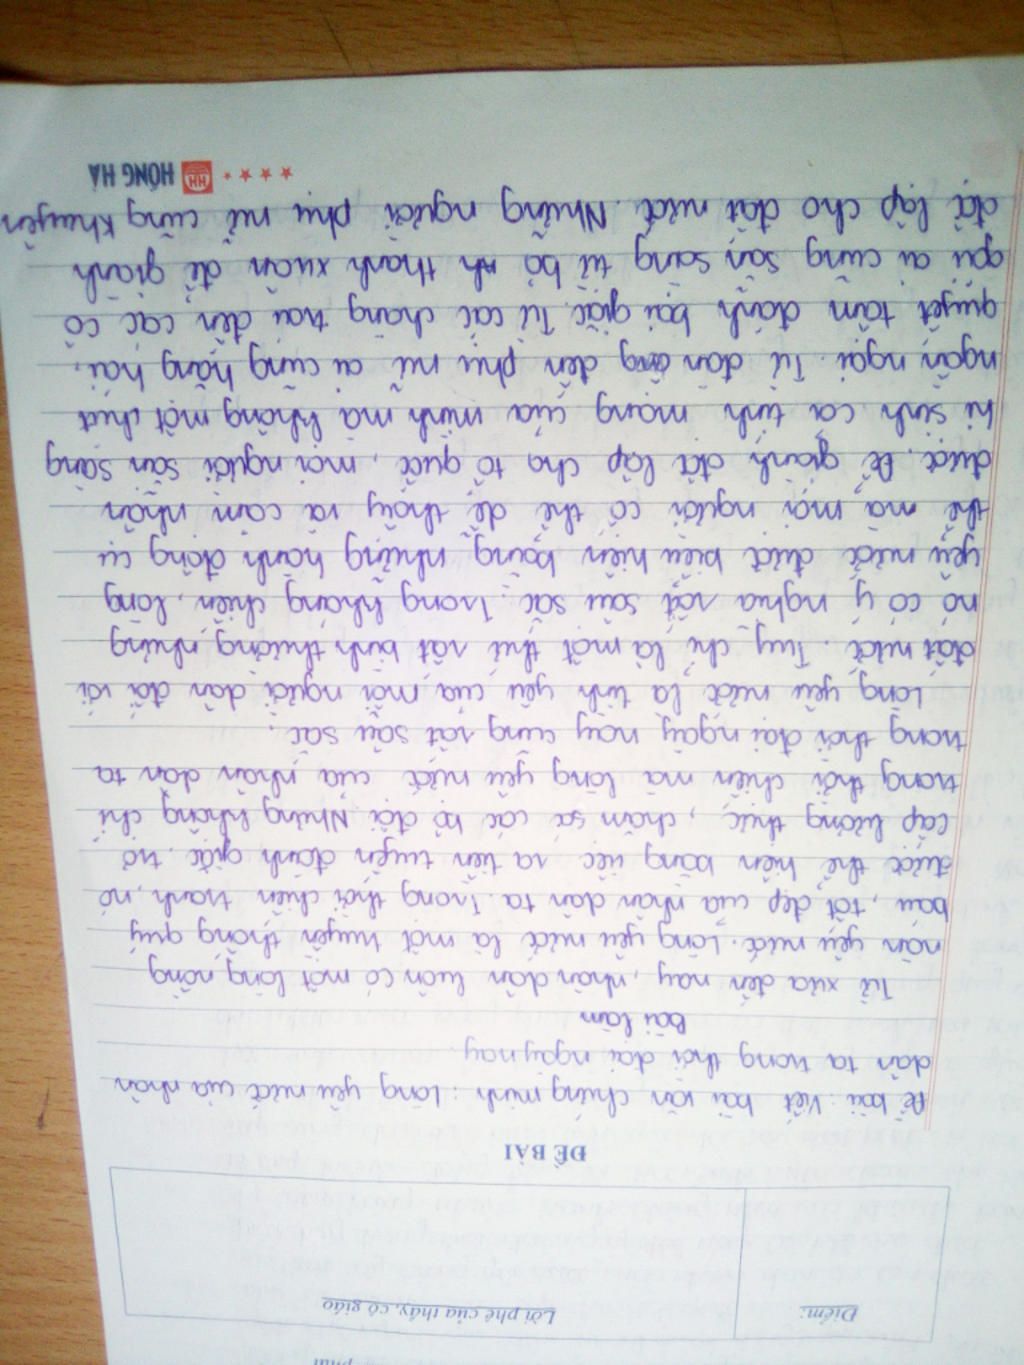 Điểm:
Lời phê của thầy, cô giáo
ĐỀ BÀI
Đề bài: Viết bài văn chứng minh: Lòng yêu nước của nhân
dân ta trong thời đại ngày nay.
Bài làm
Từ xưa đến nay, nhân dân luôn có một lòng nồng
nàn yêu nước. Lòng yêu nước là một truyền thống quý
báu, tốt đẹp của nhân dân ta. Trong thời chiến tranh, nó
được thể hiện bằng việc ra tiền tuyến đánh giặc, trở
cấp lương thực, chăm sá các bộ đội. Nhưng không chỉ
trong thời chiến mà lòng yêu nước của nhân dân ta
trong thời đại ngày nay cũng rất sâu sắc.
Lòng yêu nước là tình yêu của mỗi người dân đối với
đất nước. Tuy chỉ là một thứ rất bình thường nhưng
nó có ý nghĩa rất sâu sắc. Trong kháng chiến, lòng
yêu nước được biểu hiện bằng những hành động cụ
thể mà mọi người có thể dễ thấy và cảm nhận
được. Để giành độc lập cho tổ quốc, mọi người sẵn sàng
hi sinh cả tính mạng của mình mà không một chút
ngần ngại. Từ đàn ông đến phụ nữ ai cũng hăng hái,
quyết tâm đánh bại giặc. Từ các chàng trai đến các cô
gái ai cũng sẵn sàng từ bỏ thanh xuân để giành
độc lập cho đất nước. Những người phụ nữ cũng khuyên
HỒNG HÀ